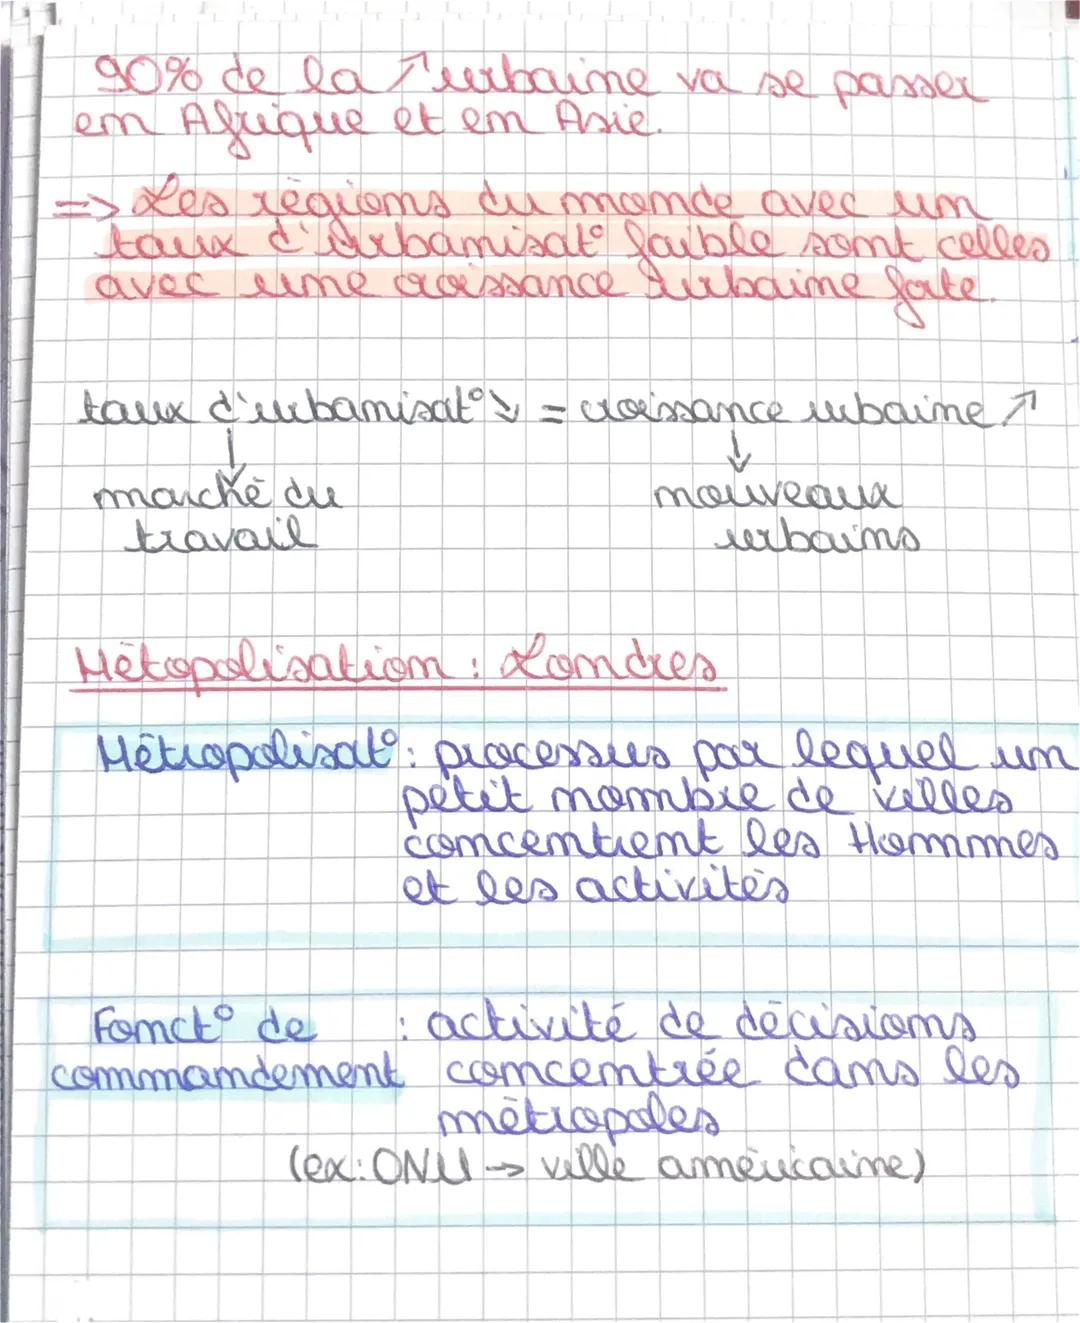 90% de la ↗ urbaine va se passer
en Afrique et en Asie.
=> Les régions du monde avec un
taux d'urbanisat° faible sont celles
avec une croissance urbaine forte.
taux d'urbanisat° ↘ = croissance urbaine ↗
↓ ↓
marché du nouveaux
travail urbains
Métropolisation : Londres
Métropolisat° : processus par lequel un
petit nombre de villes
concentrent les Hommes
et les activités
Fonct° de : activité de décisions
commandement concentrée dans les
métropoles
(ex: ONU → ville américaine)